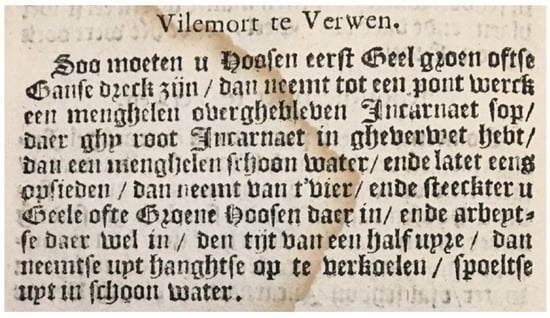 Vilemort te Verwen.
Soo moeten u Hoosen eerst Geel groen ofte
Ganse dreck zijn / dan neemt tot een pont werck
een menghelen overghebleven Incarnaet sop /
daer ghy root Incarnaet in gheverwet hebt /
dan een menghelen schoon water / ende latet eens
opsieden / dan neemt van t'vier / ende steeckter u
Geele ofte Groene Hoosen daer in / ende arbeyt-
se daer wel in / den tijt van een half uyre / dan
neemtse uyt hanghtse op te verkoelen / spoeltse
uyt in schoon water.